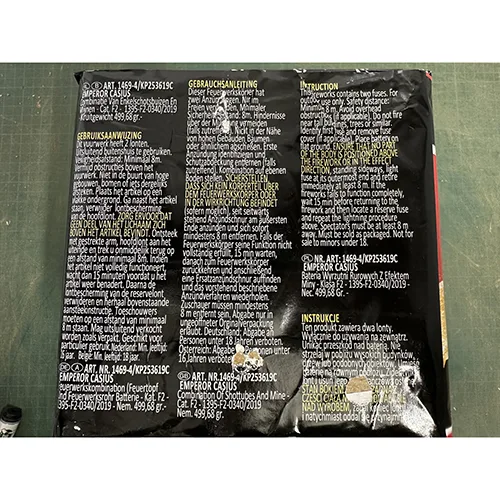 ART. 1469-4/KP253619C
EMPEROR CASIUS
Kombinatie Van Enkelschotsbuizen En
Mijnen - Cat. F2 - 1395-F2-0340/2019 -
Kruitgewicht 499,68 gr.-
GEBRUIKSAANWIJZING
Dit vuurwerk heeft 2 lonten.
Uitsluitend buitenshuis te gebruiken.
Veiligheidsafstand: Minimaal 8m.
Vermijd obstructies boven het
vuurwerk. Niet in de buurt van hoge
gebouwen, bomen of iets dergelijks
afsteken. Plaats het artikel op een
vlakke ondergrond. Ga naast het artikel
staan, verwijder lontbescherming
van de hoofdlont. ZORG ERVOOR DAT
GEEN DEEL VAN HET LICHAAM ZICH
BOVEN HET ARTIKEL BEVINDT. Ontsteek
met gestrekte arm, hoofdlont aan het
uiteinde en trek u onmiddelijk terug op
een afstand van minimaal 8m. Indien
het artikel niet volledig functioneert,
wacht dan 15 minuten voordat u het
artikel weer benadert. Daarna de
ontbescherming van de reservelont
verwijderen en herhaal bovenstaande
aansteekinstructie. Toeschouwers
moeten op een afstand van minimaal
8 m staan. Mag uitsluitend verpakt
worden zoals verpakt. Geschikt voor
particulier gebruik. Nederland: Min. leeftijd:
jaar. België: Min. leeftijd: 18 jaar.
ART. 1469-4/KP253619C
EMPEROR CASIUS
Feuerwerkskombination (Feuertopf
und Feuerwerksrohr Batterie - Kat. F2
1395-F2-0340/2019 - Nem. 499,68 gr.-
GEBRAUCHSANLEITUNG
Dieser Feuerwerkskörper hat
zwei Anzündungen. Nur im
Freien verwenden. Minimaler
Sicherheitsabstand: 8m. Hindernisse
über der Mündung vermeiden
(falls zutreffend). Nicht in der Nähe
von hohen Gebäuden, Bäumen
oder ähnlichem abschießen. Erste
Anzündung identifizieren und
Schutzabdeckung entfernen (falls
zutreffend). Körperlichen auf ebenem
Boden stellen. SICHERSTELLEN,
DASS SICH KEIN KÖRPERTEIL ÜBER
DEM FEUERWERKSKÖRPER ODER
IN WIRKRICHTUNG BEFINDET
(sofern möglich), seit seitwärts
stehend Anzündschnur am äußersten
Ende anzünden und sich sofort
mindestens 8 m entfernen. Falls der
Feuerwerkskörper seine Funktion nicht
vollständig erfüllt, 15 min warten,
danach zum Feuerwerkskörper
zurückkehren und anschließend
eine Ersatzanzündung auffinden
und das vorstehend beschriebene
Anzündverfahren wiederholen.
Zuschauer müssen mindestens
8 m entfernt sein. Abgabe nur in
ungeöffneter Originalverpackung
erlaubt. Deutschland: Abgabe an
Personen unter 18 Jahren verboten.
Österreich: Abgabe an Personen unter
16 Jahren verboten
ART. 1469-4/KP253619C
EMPEROR CASIUS
Combination Of Shottubes And Mine -
Cat. F2 - 1395-F2-0340/2019 -
Nem. 499,68 gr.-
INSTRUCTION
This fireworks contains two fuses. For
outdoor use only. Safety distance:
Minimum 8 m. Avoid overhead
obstruction (if applicable). Do not fire
near tall buildings, trees or similar.
Identify first fuse and remove fuse
cover (if applicable). Place battery on
flat ground. ENSURE THAT NO PART
OF THE BODY IS POSITIONED ABOVE
THE FIREWORK OR IN THE EFFECT
DIRECTION, standing sideways, light
fuse at its outermost end and retire
immediately at least 8 m. If the
firework fails to function completely,
wait 15 min before returning to the
firework and then locate a reserve fuse
and repeat the lightning procedure
above. Spectators must be at least 8 m
away. Must be sold as packaged. Not for
sale to minors under 18.
NR. ART. 1469-4/KP253619C
EMPEROR CASIUS
Bateria Wyrzutni Rurowych Z Efektem
Miny - Klasa F2 - 1395-F2-0340/2019 -
Nec. 499,68 Gr.-
INSTRUKCJE
Ten produkt zawiera dwa lonty.
Wyłącznie do używania na zewnątrz.
Unikać przeszkód nad baterią. Nie
strzelaj w pobliżu wysokich budynków,